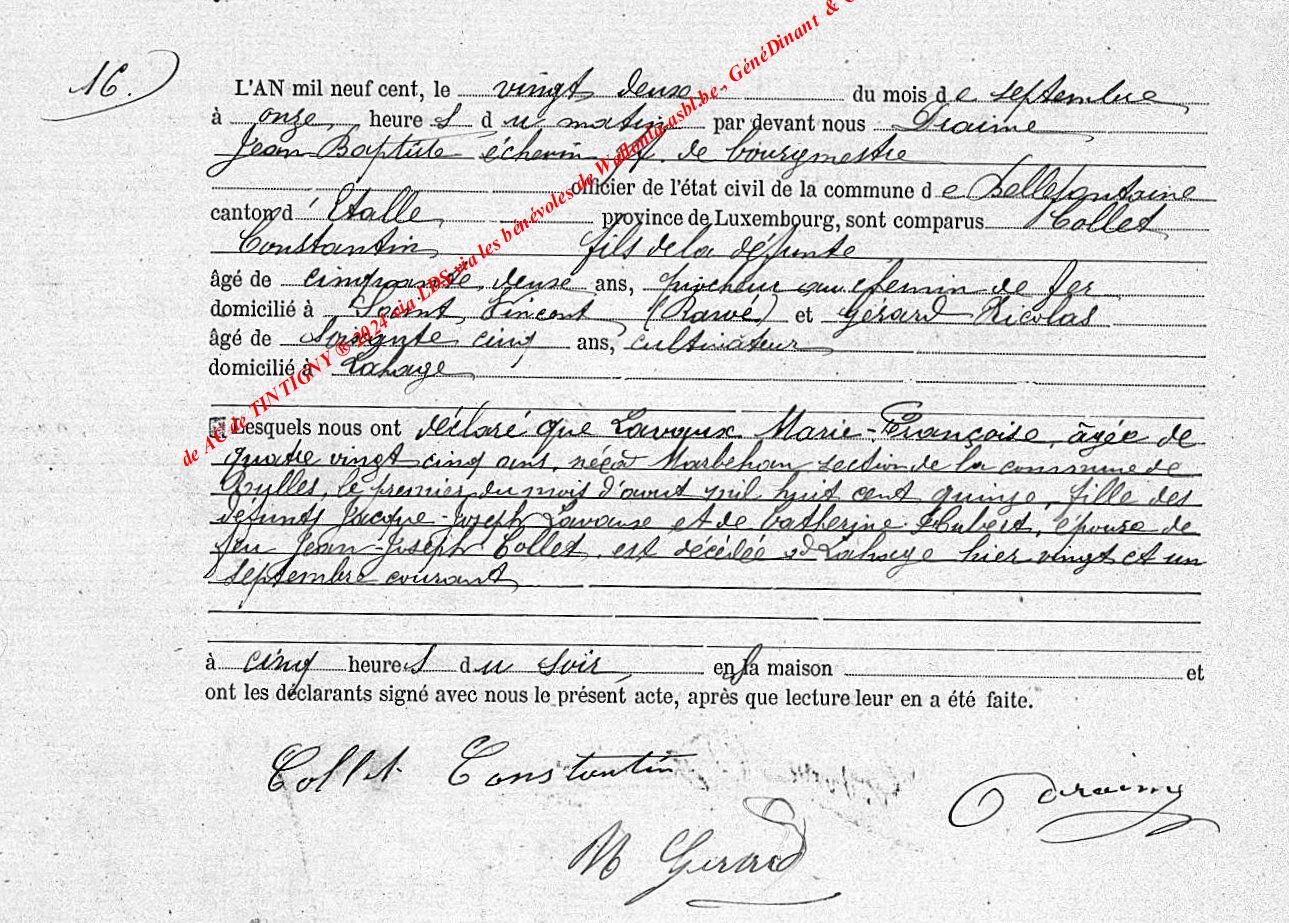 16.
L'AN mil neuf cent, le vingt deux du mois de septembre
à onze heures du matin par devant nous Draime
Jean-Baptiste échevin ff. de bourgmestre
officier de l'état civil de la commune de Bellefontaine
canton d' Etalle, province de Luxembourg, sont comparus Collet
Constantin, fils de la défunte
âgé de cinquante deux ans, piocheur au chemin de fer
domicilié à Saint Vincent, et Gérard Nicolas
âgé de soixante cinq ans, cultivateur
domicilié à Lahage
Lesquels nous ont déclaré que Lavaux Marie-Françoise, âgée de
quatre vingt cinq ans, née à Marbehan section de la commune de
Rulles, le premier du mois d'aout mil huit cent quinze, fille des
défunts Jacque-Joseph Lavause et de Catherine Hubert, épouse de
feu Jean-Joseph Collet, est décédée à Lahage hier vingt et un
septembre courant
à cinq heures du soir, en sa maison et
ont les déclarants signé avec nous le présent acte, après que lecture leur en a été faite.
Collet Constantin
Gerard
de AC de TINTIGNY ® 2024 via LDS via les bénévoles de Wallonia-asbl.be , GénéDinant &